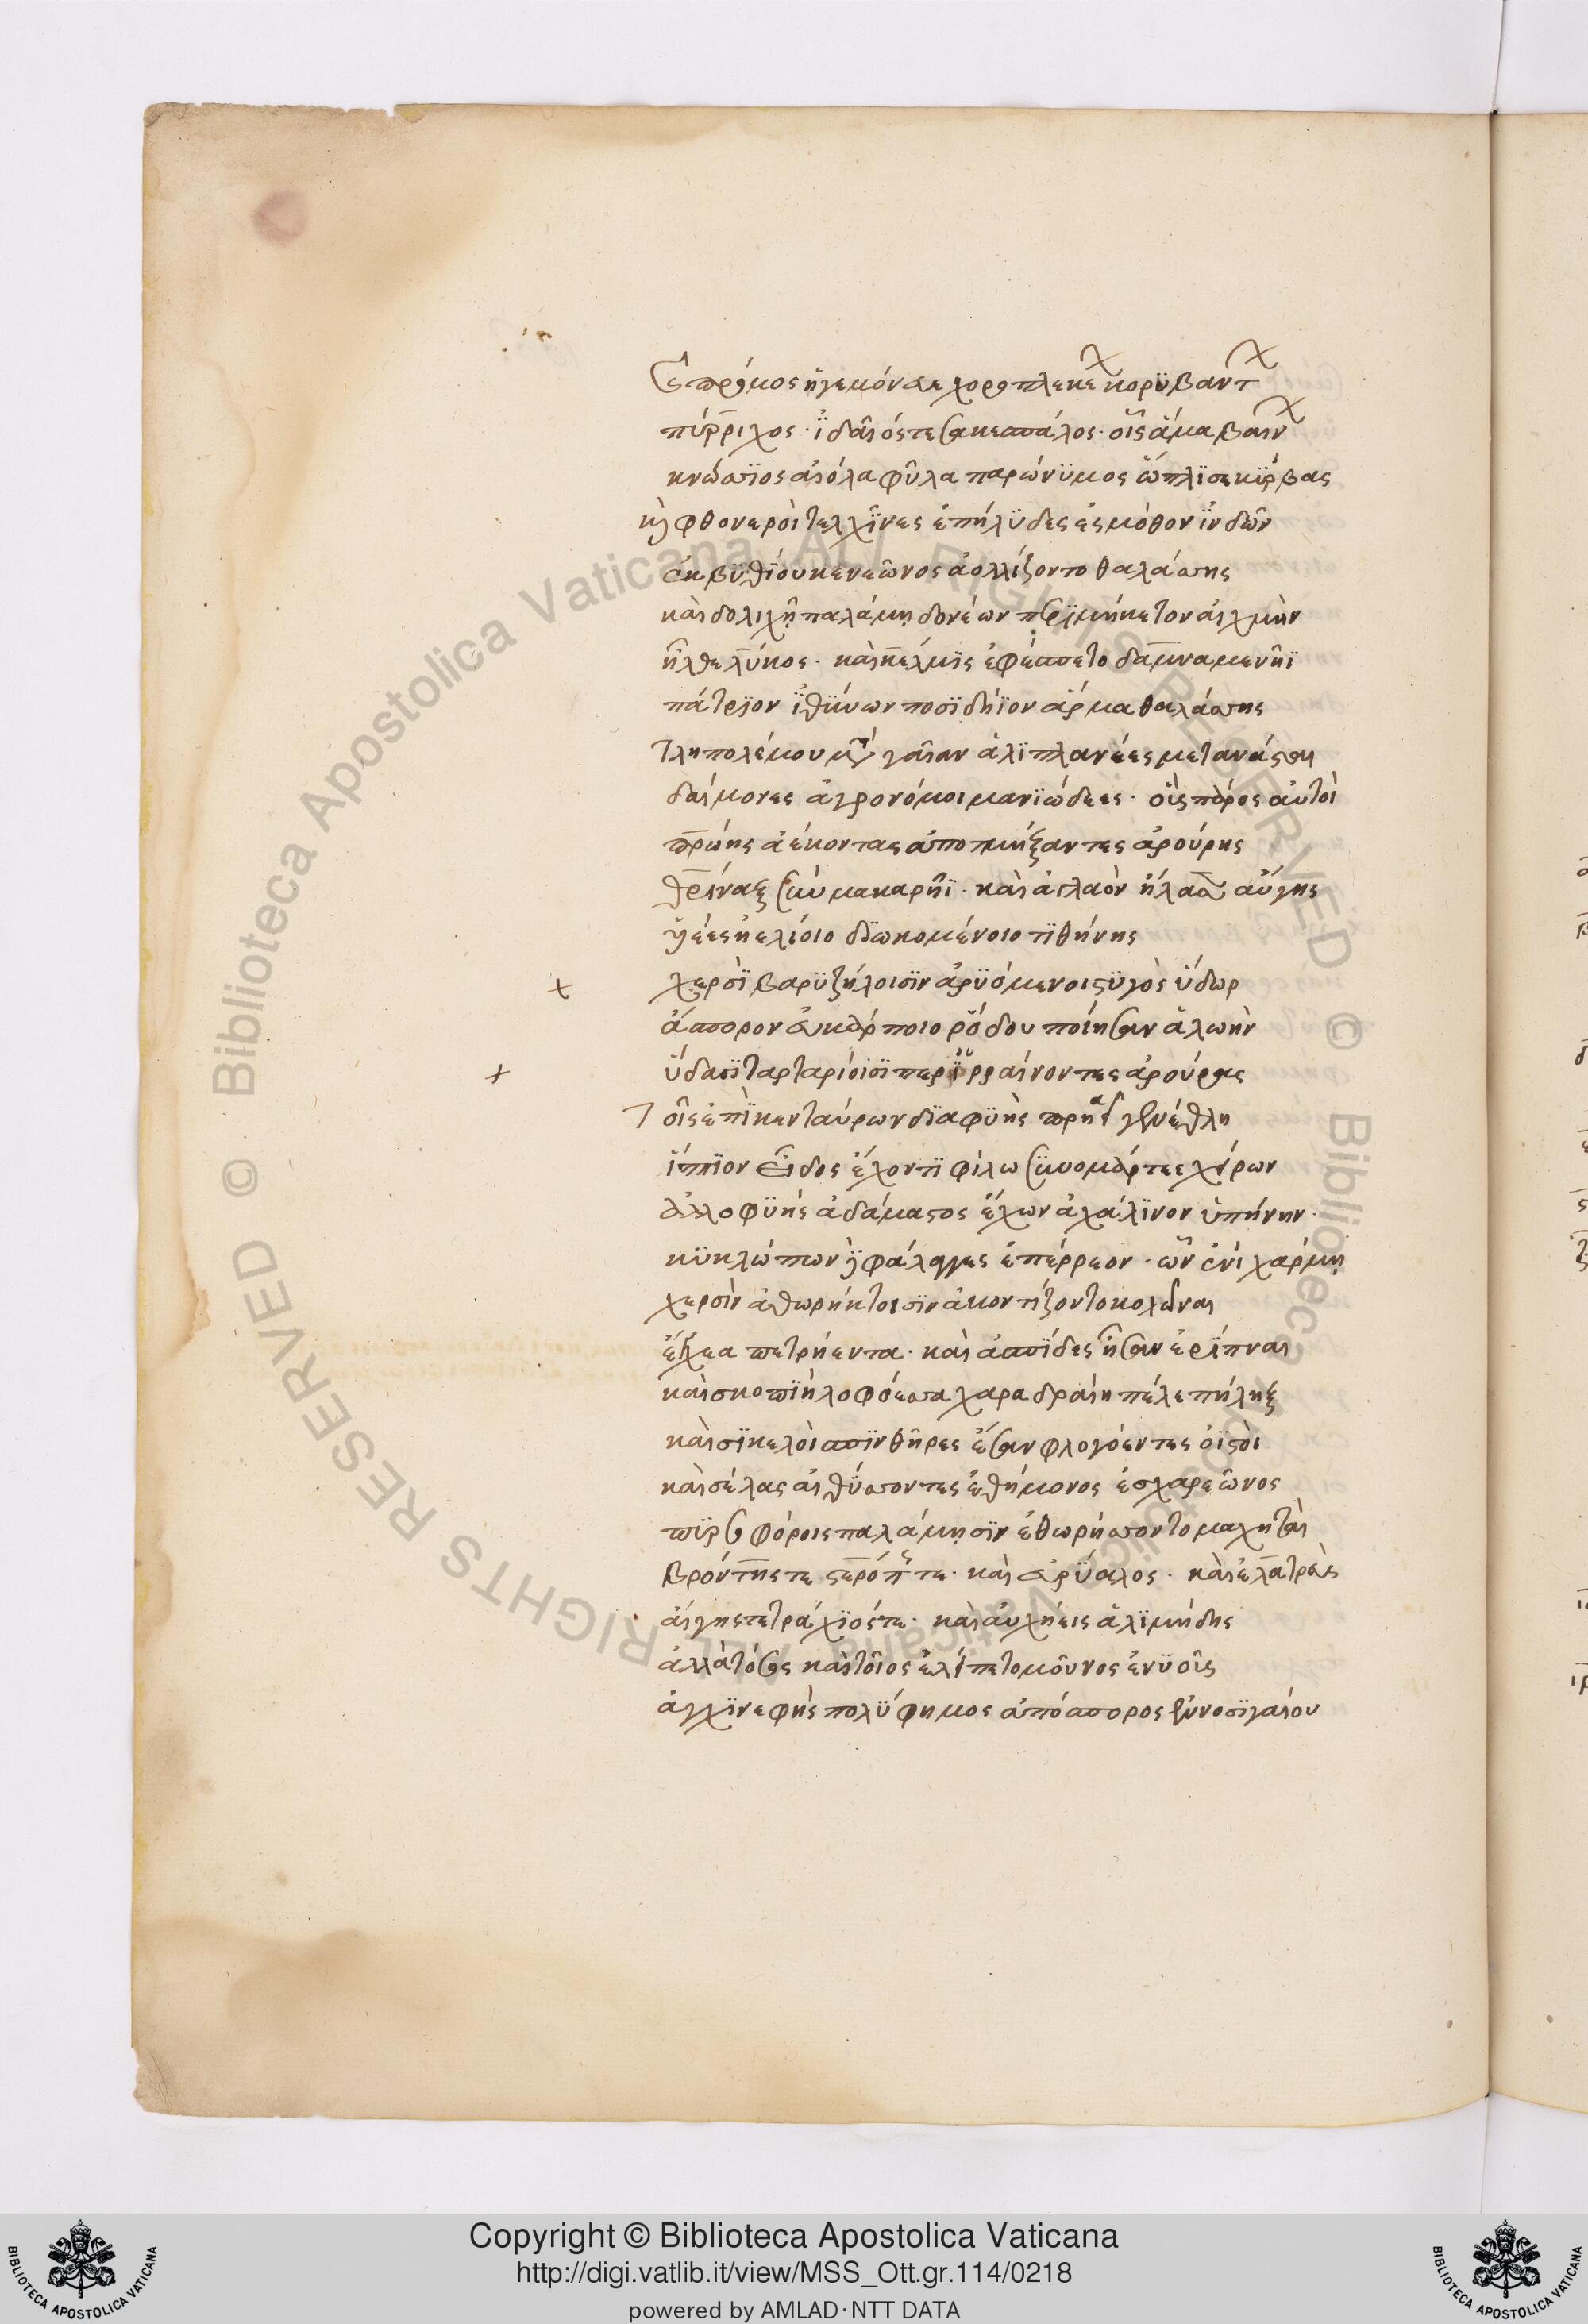 καὶ πρόμος ἡγεμόνευε χοροπλεκέων κορυβάντων
πύρριχος · ἰδαῖός τε σακεσπάλος · οἷς ἅμα βαίνων
κνώσσιος αἰόλα φῦλα παρώνυμος ὥπλισε κύρβας
καὶ φθονεροὶ τελχῖνες ἐπήλυδες ἐς μόθον ἰνδῶν
ἐκ βυθίου κενεῶνος ἀολλίζοντο θαλάσσης
καὶ δολιχῇ παλάμῃ δονέων περιμήκετον αἰχμὴν
ἦλθε λύκος · καὶ κέλμις ἐφέσπετο δαμναμενῆϊ
πάτριον ἰθύνων ποσιδήϊον ἅρμα θαλάσσης
τληπολέμου μετὰ γαῖαν ἁλιπλανέες μετανάσται
δαίμονες ἀγρονόμοι μανιώδεες · οὓς πάρος αὐτοὶ
πρώης ἀέκοντας ἀποτμήξαντες ἀρούρης
θρίναξ σὺν μακαρῆϊ · καὶ ἀγλαὸν ἤλασαν αὔγης
υἱέες ἠελίοιο διωκομένοιο τιθήνης
χερσὶ βαρυζήλοισιν ἀρυόμενοι στυγὸς ὕδωρ
ἄσπορον εὐκάρποιο ῥόδου ποίησαν ἀλωὴν
ὕδασι ταρταρίοισι περιρραίνοντες ἀρούρας
τοῖς ἐπὶ κενταύρων διαφυὴς πρηεῖα γενέθλη
ἵππιον εἶδος ἔχοντι φόλω συνομάρτεε χείρων
ἀλλοφυὴς ἀδάμαστος ἔχων ἀχάλινον ὑπήνην ·
κυκλώπων δὲ φάλαγγες ἐπέρρεον · ὧν ἐνὶ χάρμῃ
χερσὶν ἀθωρήκτοισιν ἀκοντίζοντο κολῶναι
ἔγχεα πετρήεντα · καὶ ἀσπίδες ἦσαν ἐρίπναι
καὶ σκοπιὴ λοφόεσσα χαραδραίη πέλε πήληξ
καὶ σικελοὶ σπινθῆρες ἔσαν φλογόεντες ὀϊστοὶ
καὶ σέλας αἰθύσσοντες ἐθήμονος ἐσχαρεῶνος
πυρσοφόροις παλάμῃσιν ἐθωρήσσοντο μαχηταὶ
βρόντης τε στερόπης τε · καὶ εὐρύαλος · καὶ ἐλατρεὺς
ἄργης τε τράχιός τε · καὶ αὐχήεις ἁλιμήδης
ἀλλὰ τόσος καὶ τοῖος ἐλίπετο μοῦνος ἐνυοῦς
ἀγχινεφὴς πολύφημος ἀπόσπορος ἐννοσιγαίου
Copyright © Biblioteca Apostolica Vaticana
http://digi.vatlib.it/view/MSS_Ott.gr.114/0218
powered by AMLAD·NTT DATA